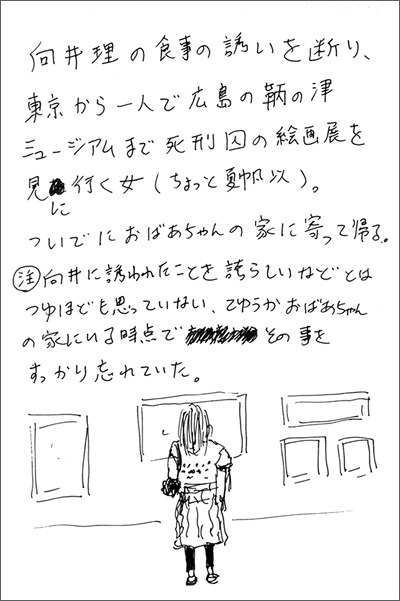 向井理の食事の誘いを断り、
東京から一人で広島の鞆の津
ミュージアムまで死刑囚の絵画展を
見に行く女(ちょっと夏帆似)。
ついでにおばあちゃんの家に寄って帰る。
注 向井に誘われたことを誇らしいなどとは
つゆほども思っていない、てゆうかおばあちゃん
の家にいる時点で その事を
すっかり忘れていた。